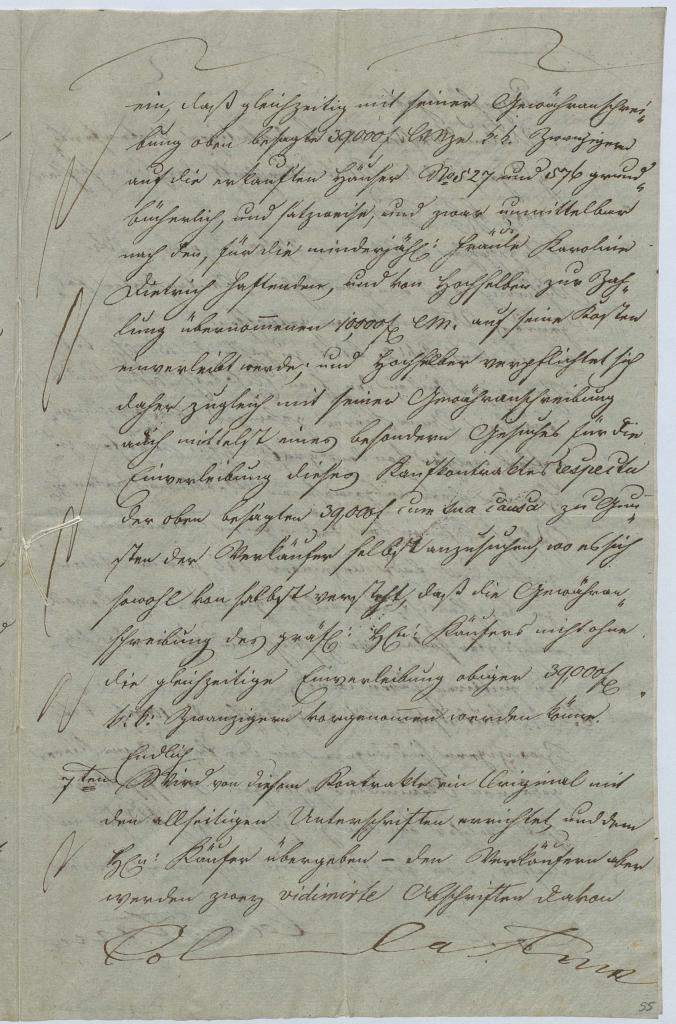 ein, daß gleichzeitig mit seiner Gewähranschrei-
bung oben besagte 39,000 f in k: k: Zwanzigern
auf die erkauften Häuser No 527 und 576 grund-
bücherlich, und satzweise, und zwar unmittelbar
nach den, für die minderjähr: Karoline
Dietrich haftenden, und von Hochselber zur Zah-
lung übernommenen 10,000 f CM. auf seine Kosten
einverleibt werde; und Hochselber verpflichtet sich
daher zugleich mit seiner Gewähranschreibung
auch mittelst eines besondern Gesuches für die
Einverleibung dieses Kaufkontraktes respectu
der oben besagten 39,000 f cum sua causa zu Gun-
sten der Verkäufer selbst anzusuchen, wo es sich
sowohl von selbst versteht, daß die Gewähran-
schreibung des gräfl: H: Käufers nicht ohne
die gleichzeitige Einverleibung obiger 39,000 f
k: k: Zwanzigern vorgenommen werden könne.
Endlich
7ten Wird von diesem Kontrakte ein Original mit
den allseitigen Unterschriften errichtet, und dem
H: Käufer übergeben – den Verkäufern aber
werden zwey vidimirte Abschriften davon
Col
55